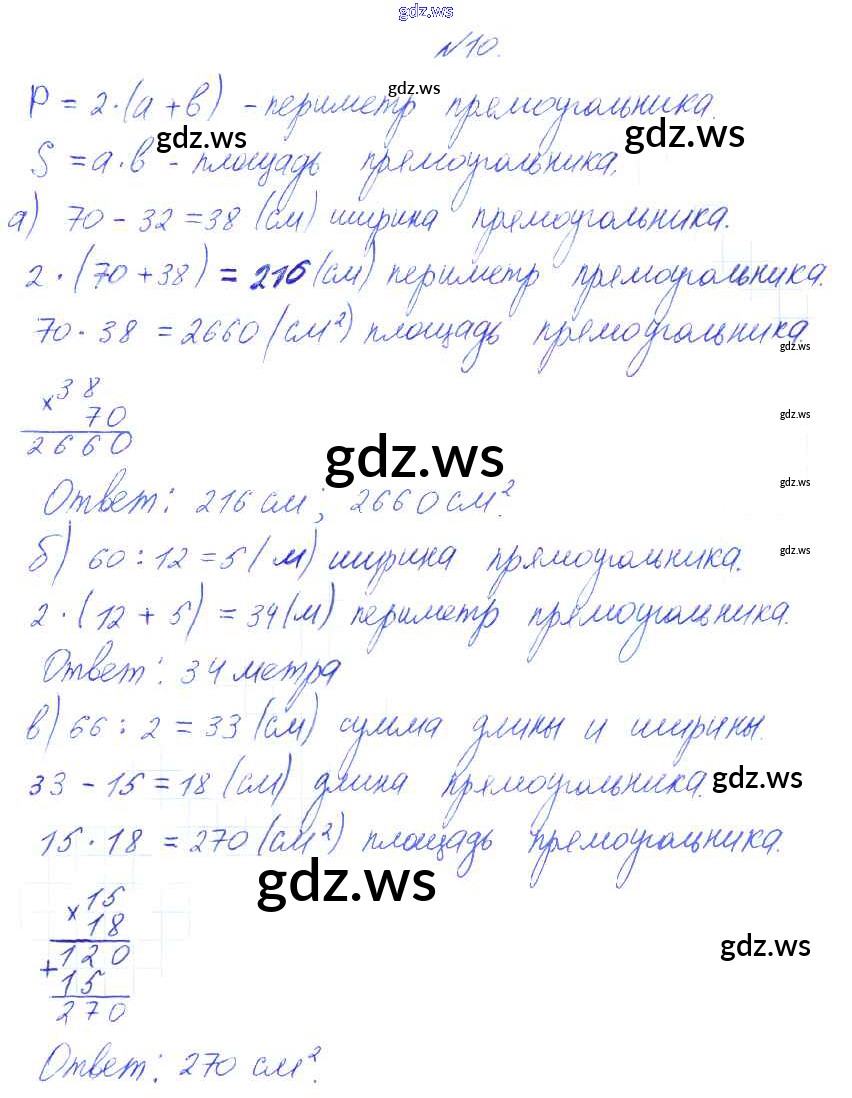 gdz.ws
№10.
P = 2·(a+b) - периметр прямоугольника.
gdz.ws
gdz.ws
gdz.ws
S = a·b - площадь прямоугольника.
а) 70 - 32 = 38 (см) ширина прямоугольника.
2·(70+38) = 216 (см) периметр прямоугольника.
70·38 = 2660 (см²) площадь прямоугольника.
gdz.ws
× 38
70
gdz.ws
2660
gdz.ws
gdz.ws
Ответ: 216 см; 2660 см².
gdz.ws
б) 60 : 12 = 5 (м) ширина прямоугольника.
2·(12 + 5) = 34 (м) периметр прямоугольника.
Ответ: 34 метра
в) 66 : 2 = 33 (см) сумма длины и ширины.
33 - 15 = 18 (см) длина прямоугольника.
gdz.ws
15·18 = 270 (см²) площадь прямоугольника.
gdz.ws
× 15
18
gdz.ws
+ 120
15
270
Ответ: 270 см².